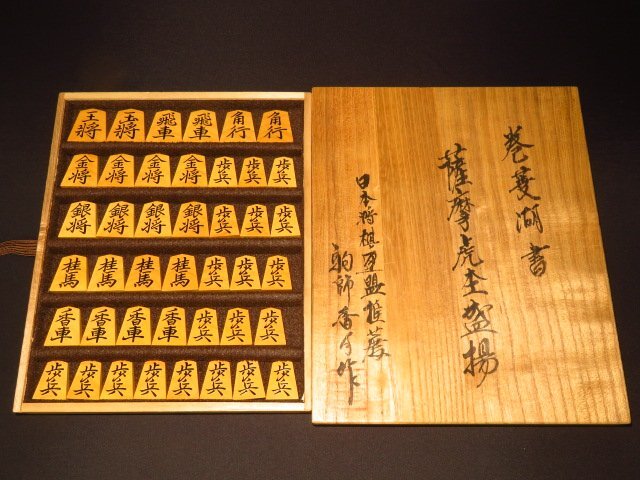 王將 玉將 飛車 飛車 角行 角行
金將 金將 金將 金將 歩兵 歩兵 歩兵
銀將 銀將 銀將 銀將 歩兵 歩兵 歩兵
桂馬 桂馬 桂馬 桂馬 歩兵 歩兵 歩兵
香車 香車 香車 香車 歩兵 歩兵 歩兵
歩兵 歩兵 歩兵 歩兵 歩兵 歩兵 歩兵 歩兵
巻菱湖書
薩摩虎杢盛揚
日本将棋聯盟推薦
駒師香月作